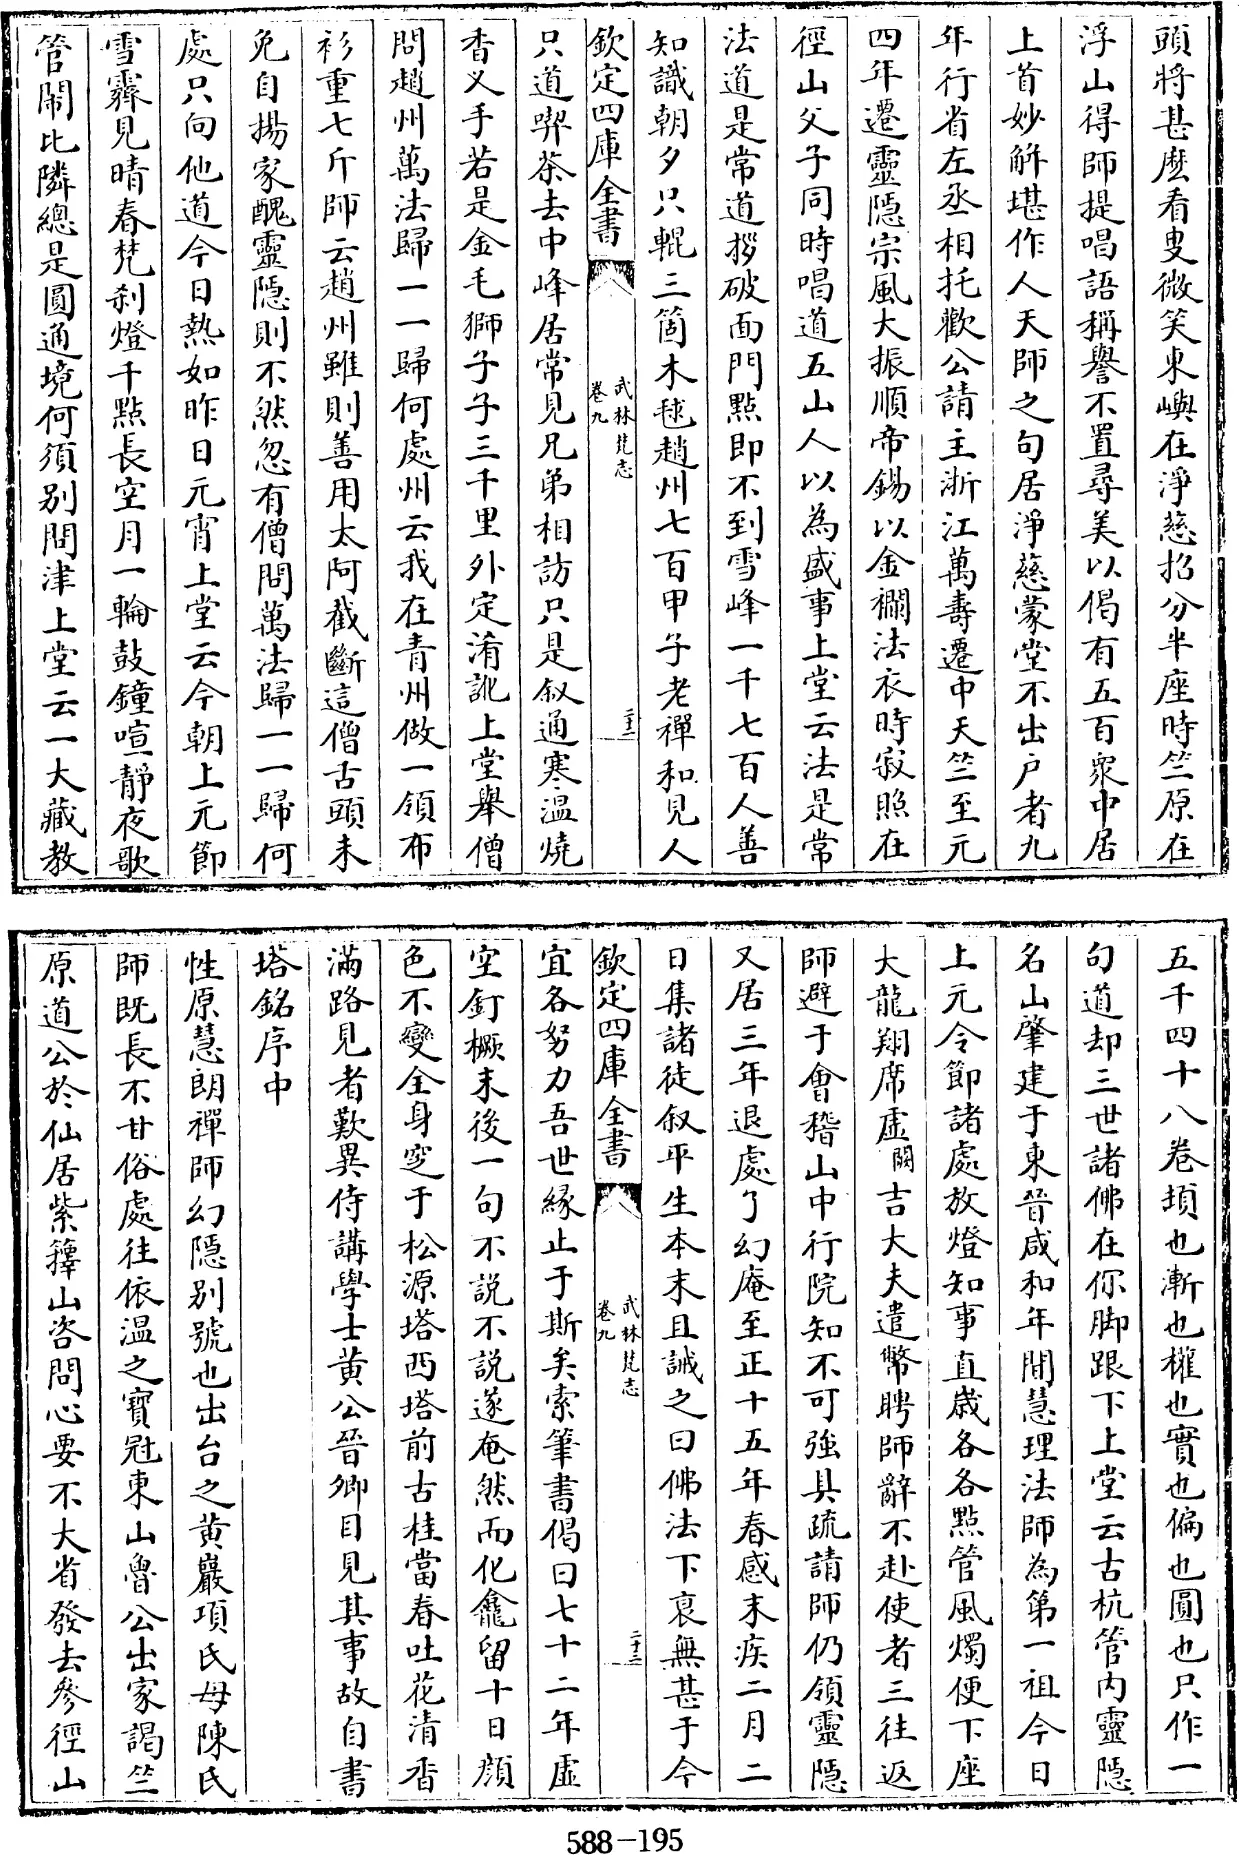 頭將甚麽看叟微笑東嶼在淨慈招分半座時竺原在
浮山得師提唱語稱譽不置尋美以偈有五百衆中居
上首妙解堪作人天師之句居淨慈蒙堂不出户者九
年行省左丞相托歡公請主浙江萬壽遷中天竺至元
四年遷靈隱宗風大振順帝錫以金襴法衣時寂照在
徑山父子同時唱道五山人以為盛事上堂云法是常
法道是常道拶破面門點即不到雪峰一千七百人善
知識朝夕只輥三箇木毬趙州七百甲子老禪和見人
欽定四庫全書
武林梵志
卷九
二十二
只道喫茶去中峰居常見兄弟相訪只是叙通寒温燒
香叉手若是金毛獅子子三千里外定淆訛上堂舉僧
問趙州萬法歸一一歸何處州云我在青州做一領布
衫重七斤師云趙州雖則善用太阿截斷這僧舌頭未
免自揚家醜靈隱則不然忽有僧問萬法歸一一歸何
處只向他道今日熱如昨日元宵上堂云今朝上元節
雪霽見晴春梵刹燈千點長空月一輪鼓鐘喧靜夜歌
管鬧比隣總是圓通境何須别問津上堂云一大藏教
五千四十八卷頓也漸也權也實也偏也圓也只作一
句道却三世諸佛在你脚跟下上堂云古杭管内靈隱
名山肇建于東晉咸和年間慧理法師為第一祖今日
上元令節諸處放燈知事直歲各各點管風燭便下座
大龍翔席虚闕吉大夫遣幣聘師辭不赴使者三往返
師避于會稽山中行院知不可強具疏請師仍領靈隱
又居三年退處了幻庵至正十五年春感末疾二月二
日集諸徒叙平生本末且誡之曰佛法下衰無甚于今
欽定四庫全書
武林梵志
卷九
二十三
宜各努力吾世緣止于斯矣索筆書偈曰七十二年虚
空釘橛末後一句不説不説遂奄然而化龕留十日顔
色不變全身窆于松源塔西塔前古桂當春吐花清香
滿路見者歎異侍講學士黄公晉卿目見其事故自書
塔銘序中
性原慧朗禪師幻隱别號也出台之黄巖項氏母陳氏
師既長不甘俗處往依温之寶冠東山魯公出家謁竺
原道公於仙居紫籜山咨問心要不大省發去參徑山
588-195